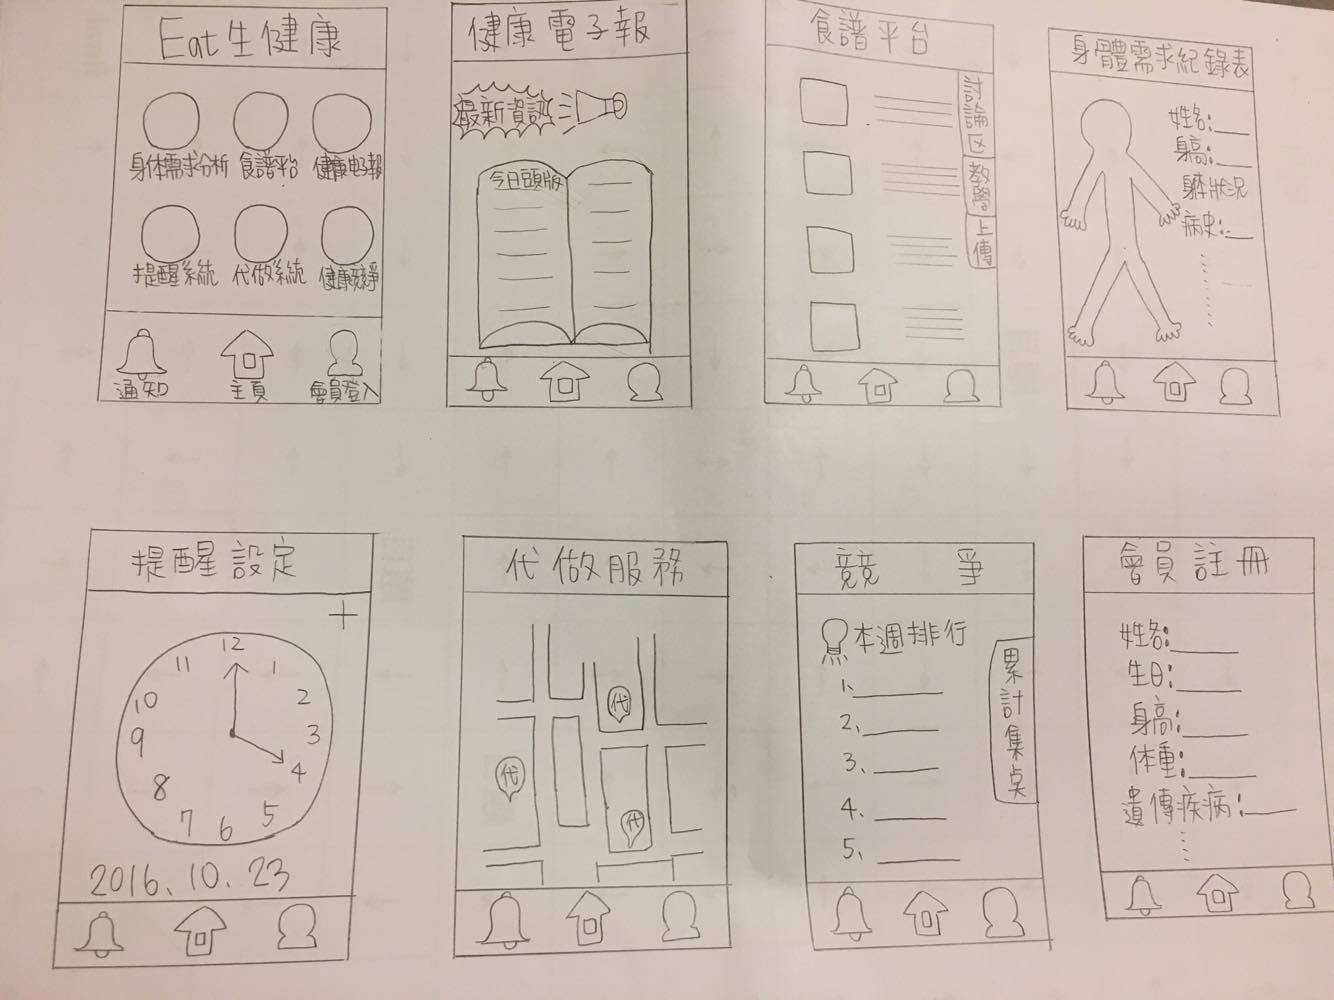 Eat生健康
身体需求分析 食譜平台 健康电子報
提醒系統 代做系統 健康競爭
通知 主頁 會員登入
健康電子報
最新資訊
今日頭版
食譜平台
討論区
教學
上傳
身體需求紀錄表
姓名:
身高:
身體狀況
病史:
提醒設定
+
12
11 1
10 2
9 3
8 4
7 6 5
2016.10.23
代做服務
代
代
代
競爭
本週排行
1、
2、
3、
4、
5、
累計集点
會員註冊
姓名:
生日:
身高:
体重:
遺傳疾病: